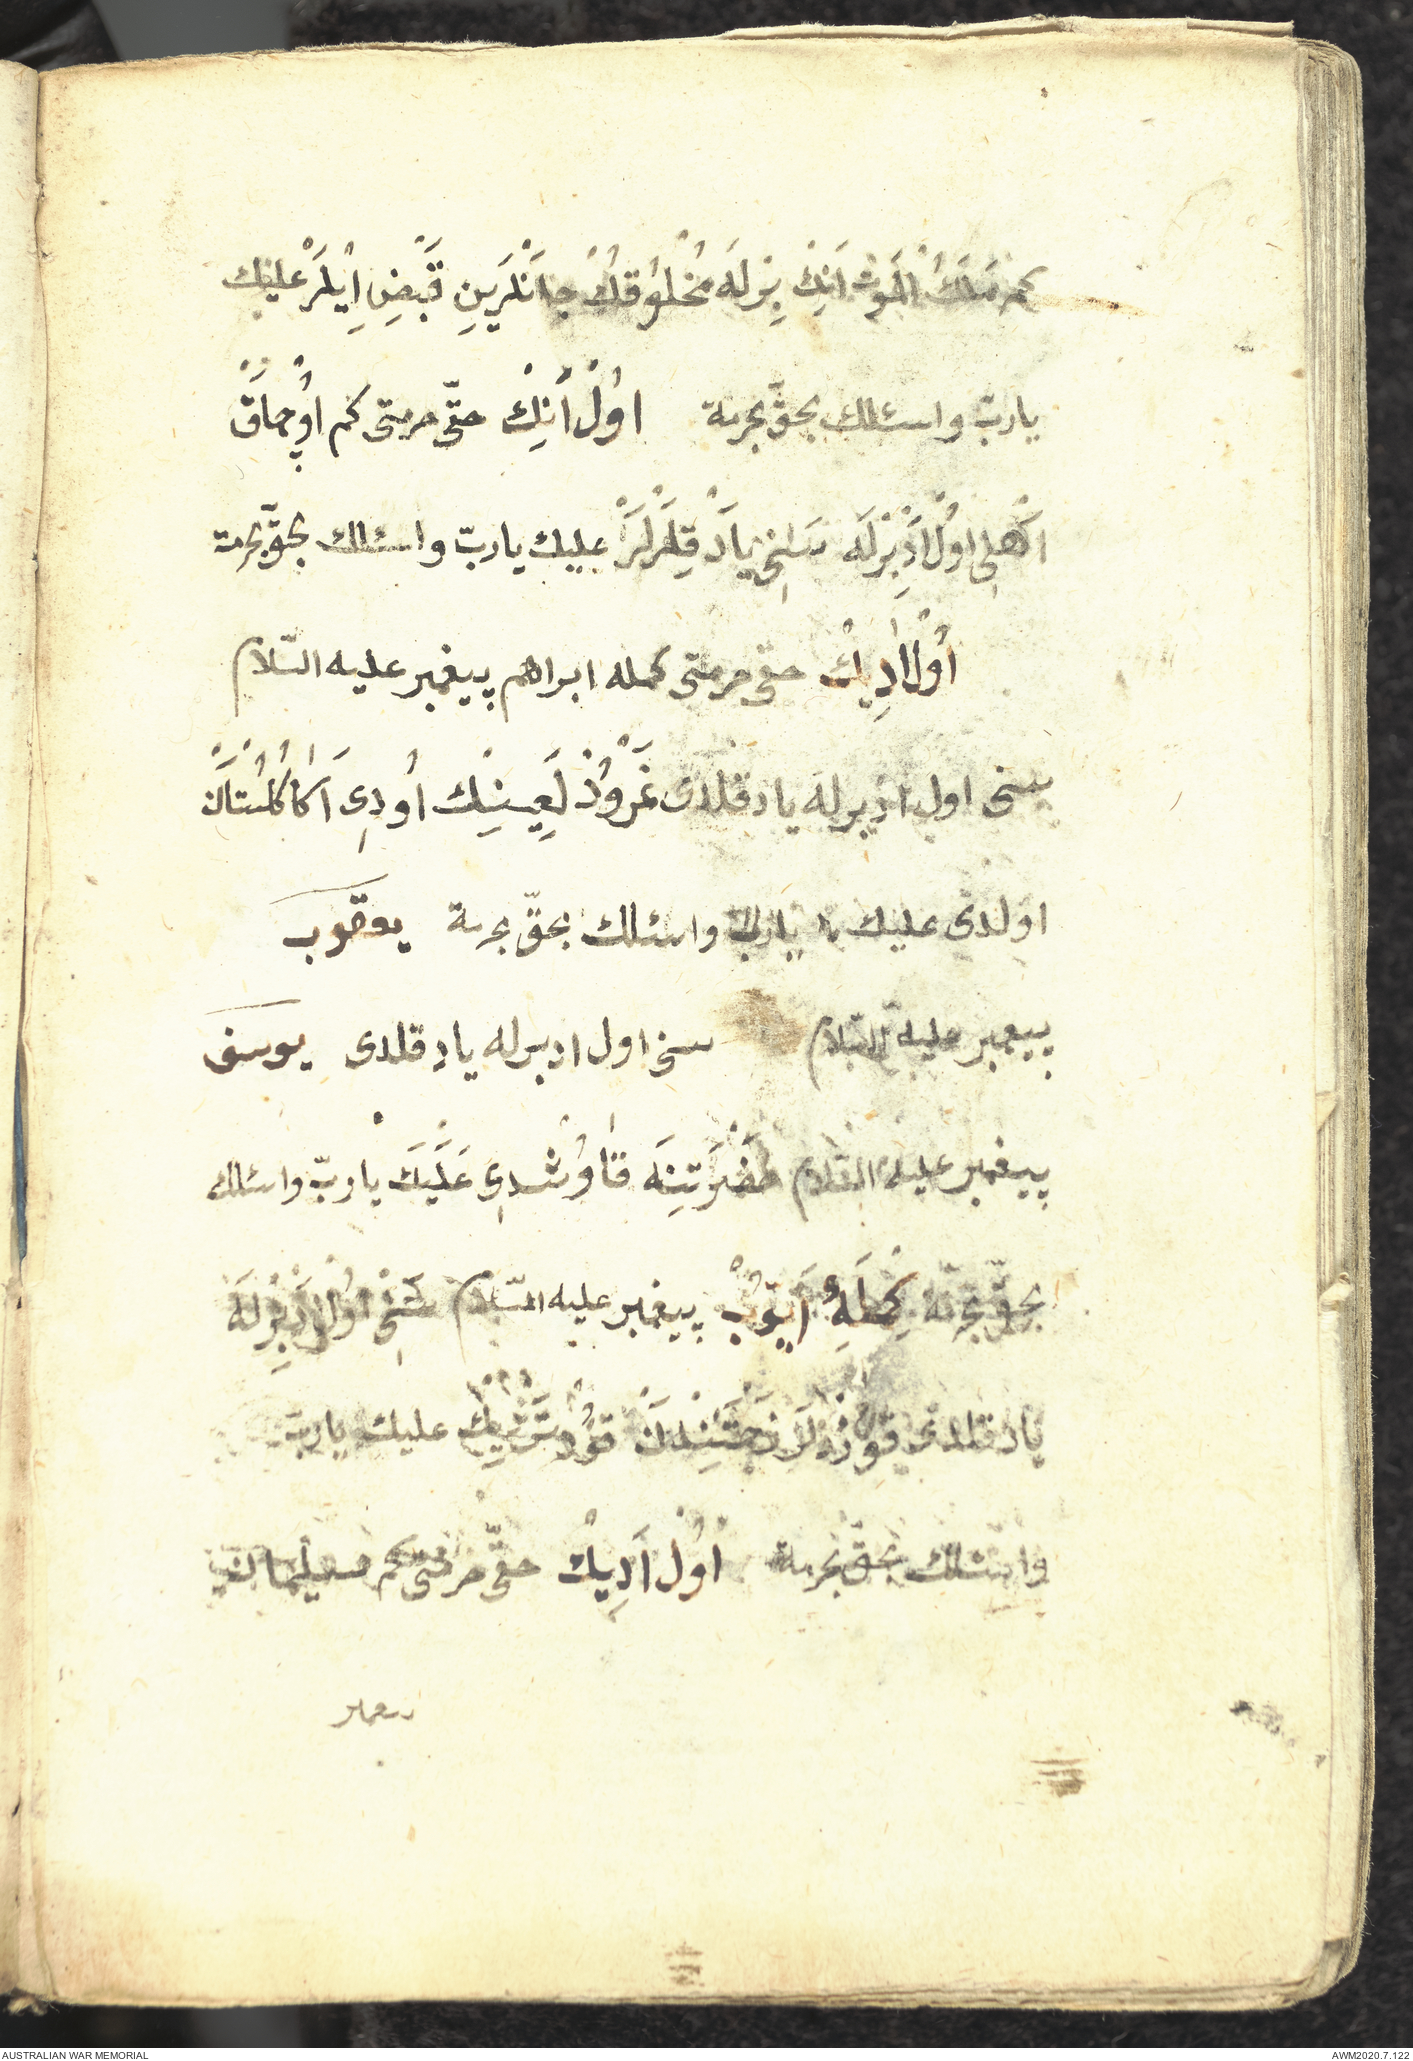 كم ملك الموت انك برله مخلوقك جانلرين قبض ايلر عليك
يا ربّ واسئلك بحقّ بحرمة اول انك حقّى حرمتى كم اوچماق
اهلى اول اد برله سنى ياد قلرلر عليك يا ربّ واسئلك بحقّ بحرمة
اول اديك حقى حرمتى كمله ابراهم پيغمبر عليه السّلام
سنى اول اد برله ياد قلدى نمرود لعينك اودى اكا كلستان
اولدى عليك يا ربّ واسئلك بحقّ بحرمة يعقوب
پيغمبر عليه السّلام سنى اول اد برله ياد قلدى يوسف
پيغمبر عليه السّلام حضرتنه قاوشدى عليك يا ربّ واسئلك
بحقّ بحرمة كمله ايّوب پيغمبر عليه السّلام سنى اول اد برله
ياد قلدى قورتلر زحمتندن قورتردك عليك يا ربّ
واسئلك بحقّ بحرمة اول اديك حقّى حرمتى كم سليمان
پيغمبر
AUSTRALIAN WAR MEMORIAL
AWM2020.7.122